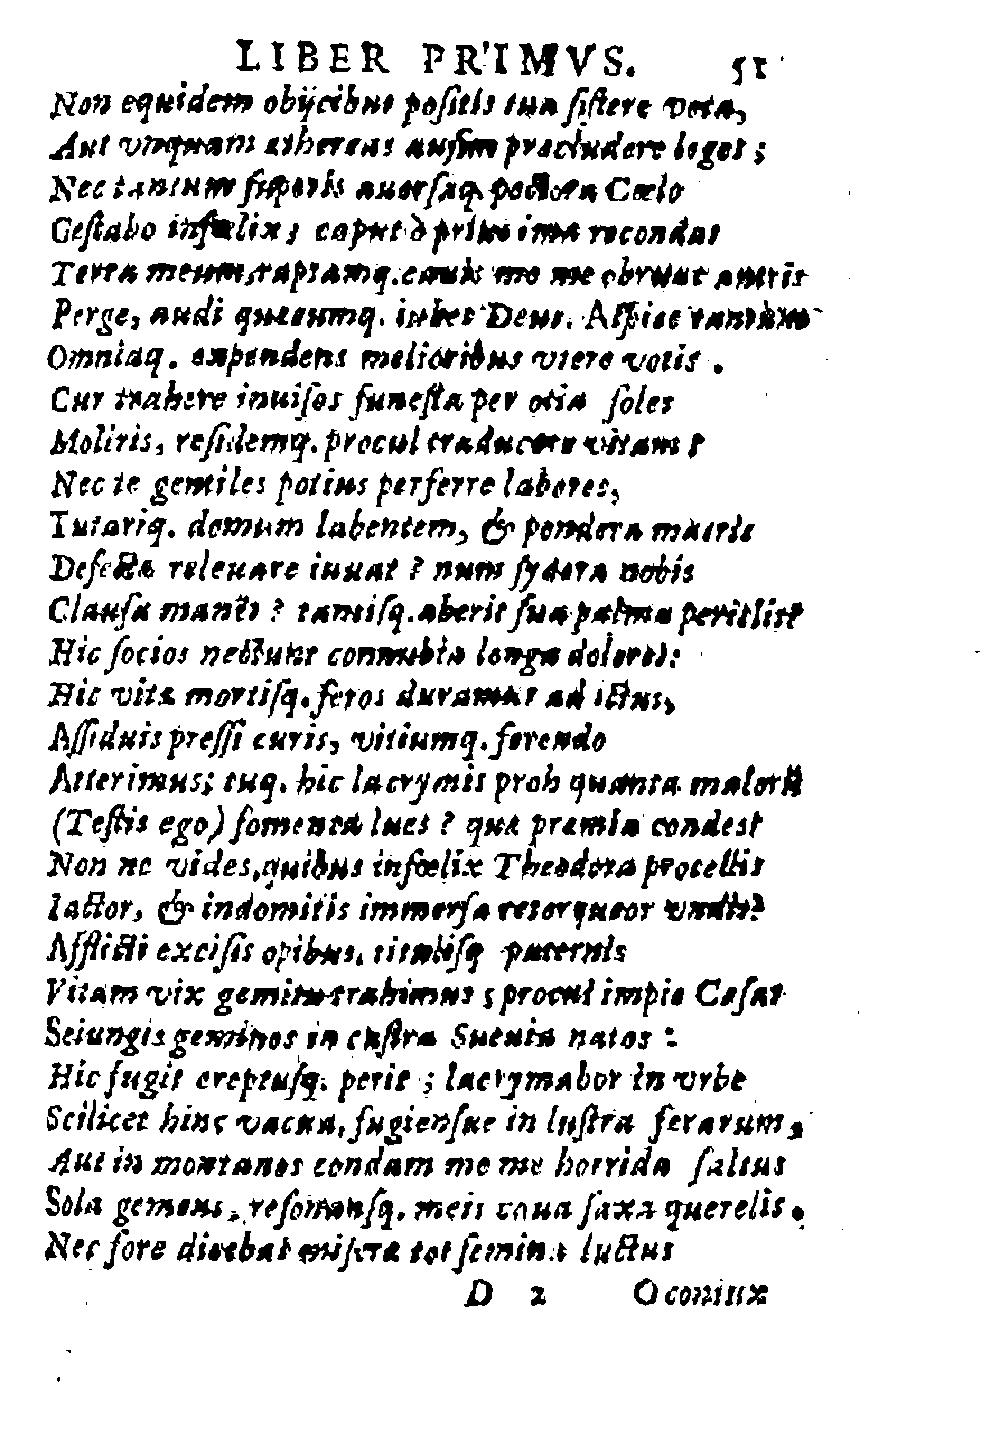 LIBER PRIMVS. 51
Non equidem obijcibus positis tua sistere vota,
Aut vnquam æthereas ausim præcludere leges;
Nec tantum superis auersaq. pectora Cœlo
Gestabo infœlix; caput ò prius ima recondat
Terra meum, raptamq. cauis me me obruat antris
Perge, audi quæcumq. iubet Deus. Aspice tantum
Omniaq. expendens melioribus vtere votis.
Cur trahere inuisos funesta per otia soles
Moliris, residemq. procul traducere vitam?
Nec te gentiles potius perferre labores,
Tutariq. domum labentem, & pondera matris
Defecta releuare iuuat? num sydera nobis
Clausa manët? tantisq. aberit sua palma periclis?
Hic socios nectunt connubia longa dolores:
Hic vitæ mortisq. feros duramur ad ictus,
Assiduis pressi curis, vitiumq. ferendo
Atterimus; tuq. hic lacrymis proh quanta malorū
(Testis ego) fomenta lues? quæ præmia condes?
Non ne vides, quibus infœlix Theodora procellis
Iactor, & indomitis immersa retorqueor vndis?
Afflicti excisis opibus, titulisq paternis
Vitam vix gemitu trahimus; procul impie Cæsar
Seiungis geminos in castra Sueuia natos:
Hic fugit ereptusq. perit; lacrymabor in vrbe
Scilicet hinc vacua, fugiensue in lustra ferarum,
Aut in montanos condam me me horrida saltus
Sola gemens, resonansq. meis caua saxa querelis.
Nec fore dicebat misera tot semina luctus
D 2 O coniux